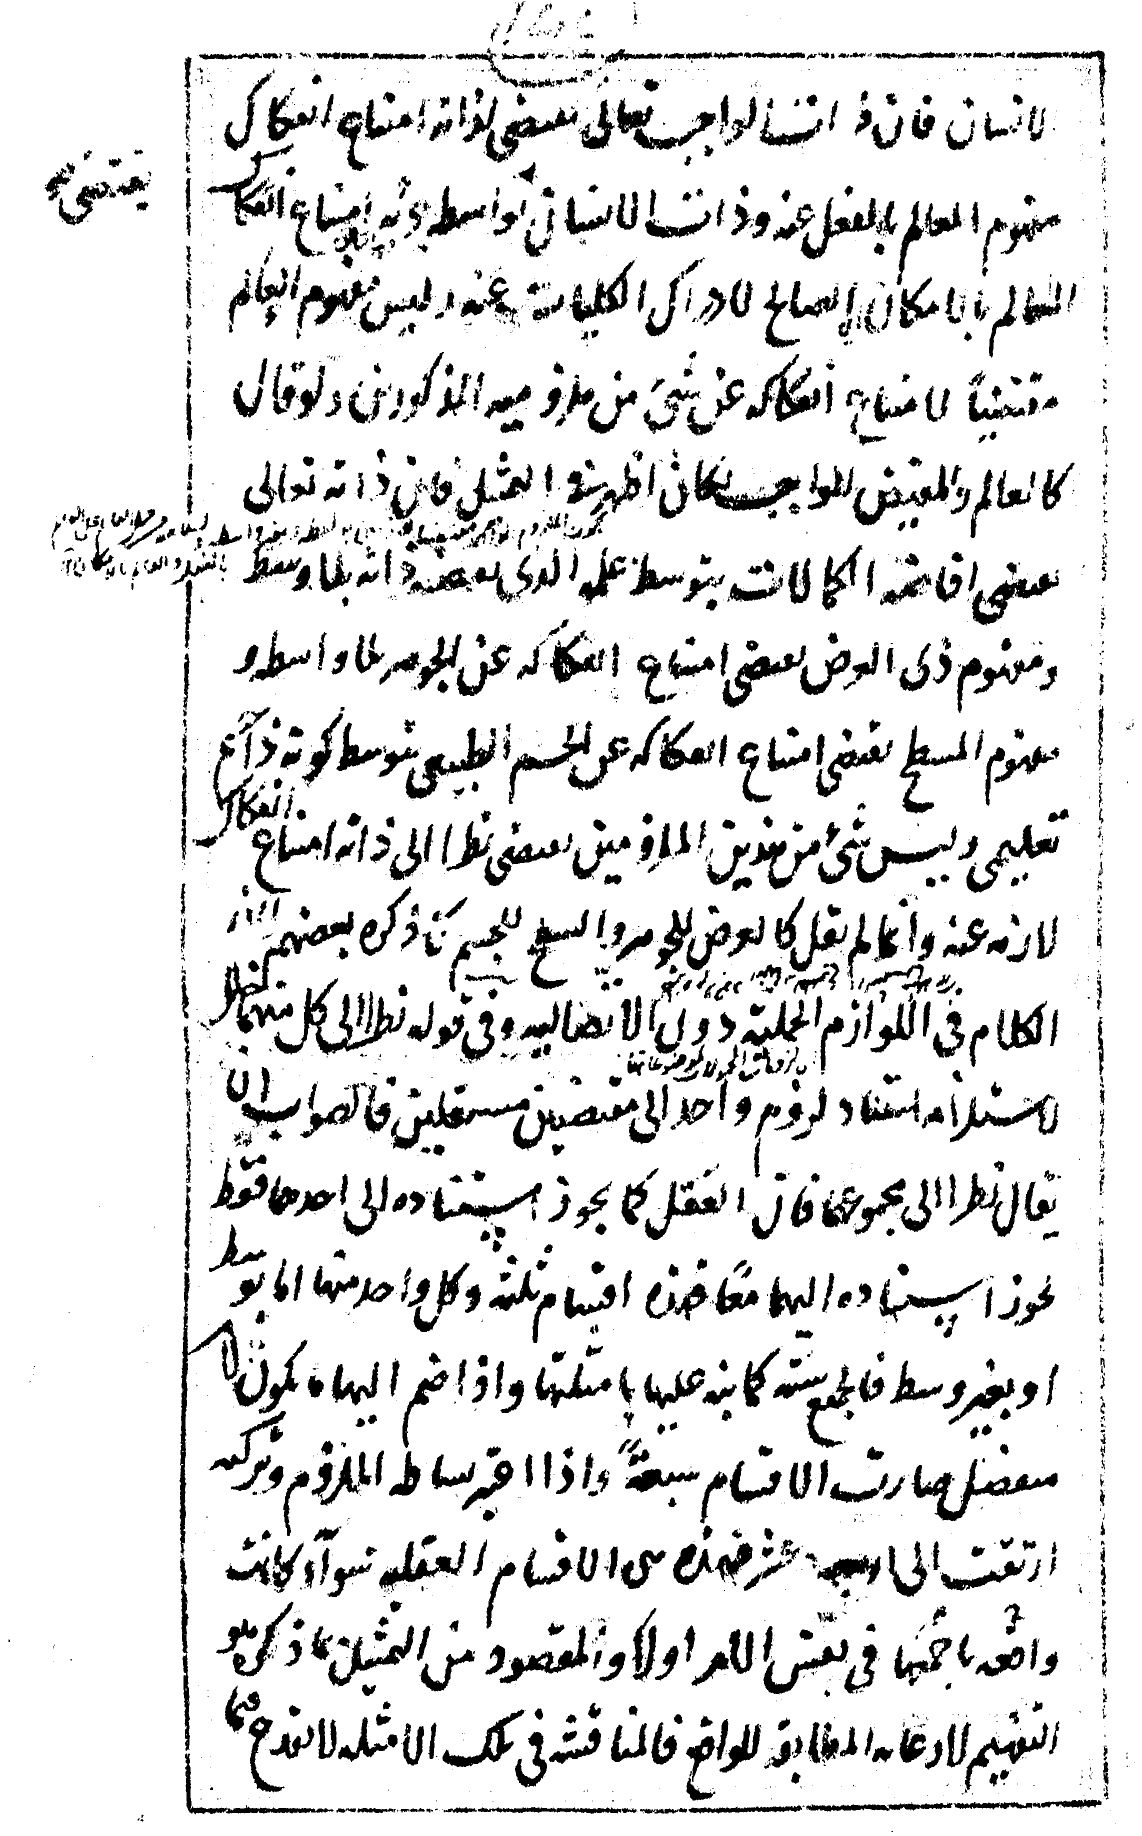 للانسان فان ذات الواجب تعالى يقتضى لذاته امتناع انفكاك
مفهوم العالم بالفعل عنه وذات الانسان بواسطة يقتضى امتناع انفكاك
العالم بالامكان الصالح لادراك الكليات عنه وليس مفهوم العالم
مقتضيا لامتناع انفكاكه عن شئ من ملزوميه المذكورين ولو قال
كالعالم والمفيض للواجب لكان اظهر فى التمثيل فان ذاته تعالى
يقتضى افاضة الكمالات بتوسط علمه الذى يقتضيه ذاته بلا وسط
ومفهوم ذى العرض يقتضى امتناع انفكاكه عن الجوهر بلا واسطة و
مفهوم السطح يقتضى امتناع انفكاكه عن الجسم الطبيعى بتوسط كونه ذا
تعليمى وليس شئ من هذين الملزومين يقتضى نظرا الى ذاته امتناع انفكاك
لازمه عنه وانما لم نقل كالعرض للجوهر والسطح للجسم كما ذكره بعضهم لان
الكلام فى اللوازم الحملية دون الاتصالية وفى قوله نظرا الى كل منهما نظر
لاستلزامه استناد لزوم واحد الى مقتضيين مستقلين فالصواب ان
يقال نظرا الى مجموعهما فان العقل كما يجوز استناده الى احدهما فقط
يجوز استناده اليهما معا فهذه اقسام ثلثة وكل واحد منها اما بوسط
او بغير وسط فالجميع ستة كما نبه عليها بامثلتها واذا ضم اليها ما يكون لا
منفصل صارت الاقسام سبعة واذا اعتبر بساطة الملزوم وتركبه
ارتقت الى اربعة عشر فهذه هى الاقسام العقلية سواء كانت
واقعة باجمعها فى نفس الامر اولا والمقصود من التمثيل بما ذكره هو
التفهيم لا رعاية المطابقة للواقع فالمناقشة فى تلك الامثلة لا تقدح فيما
يقتضى